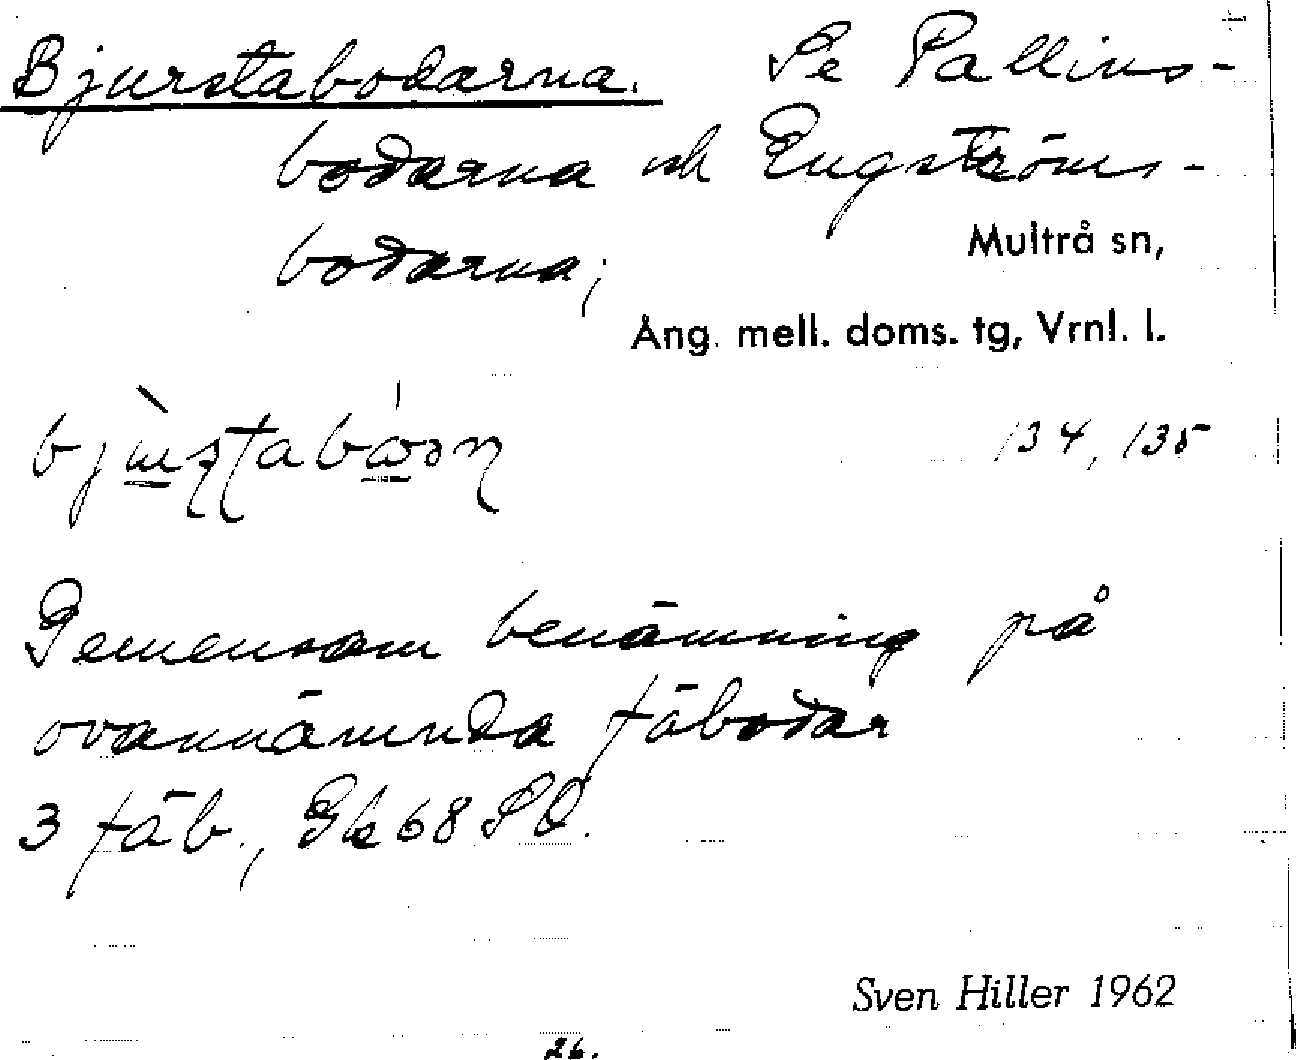 Bjurstabodarna. Se Pallins-
bodarna och Engströms-
bodarna;
Multrå sn,
Ång. mell. doms. tg, Vrnl. l.
134, 135
Gemensam benämning på
ovannämnda fäbodar
3 fäb., Gk 68 SO.
Sven Hiller 1962
26.